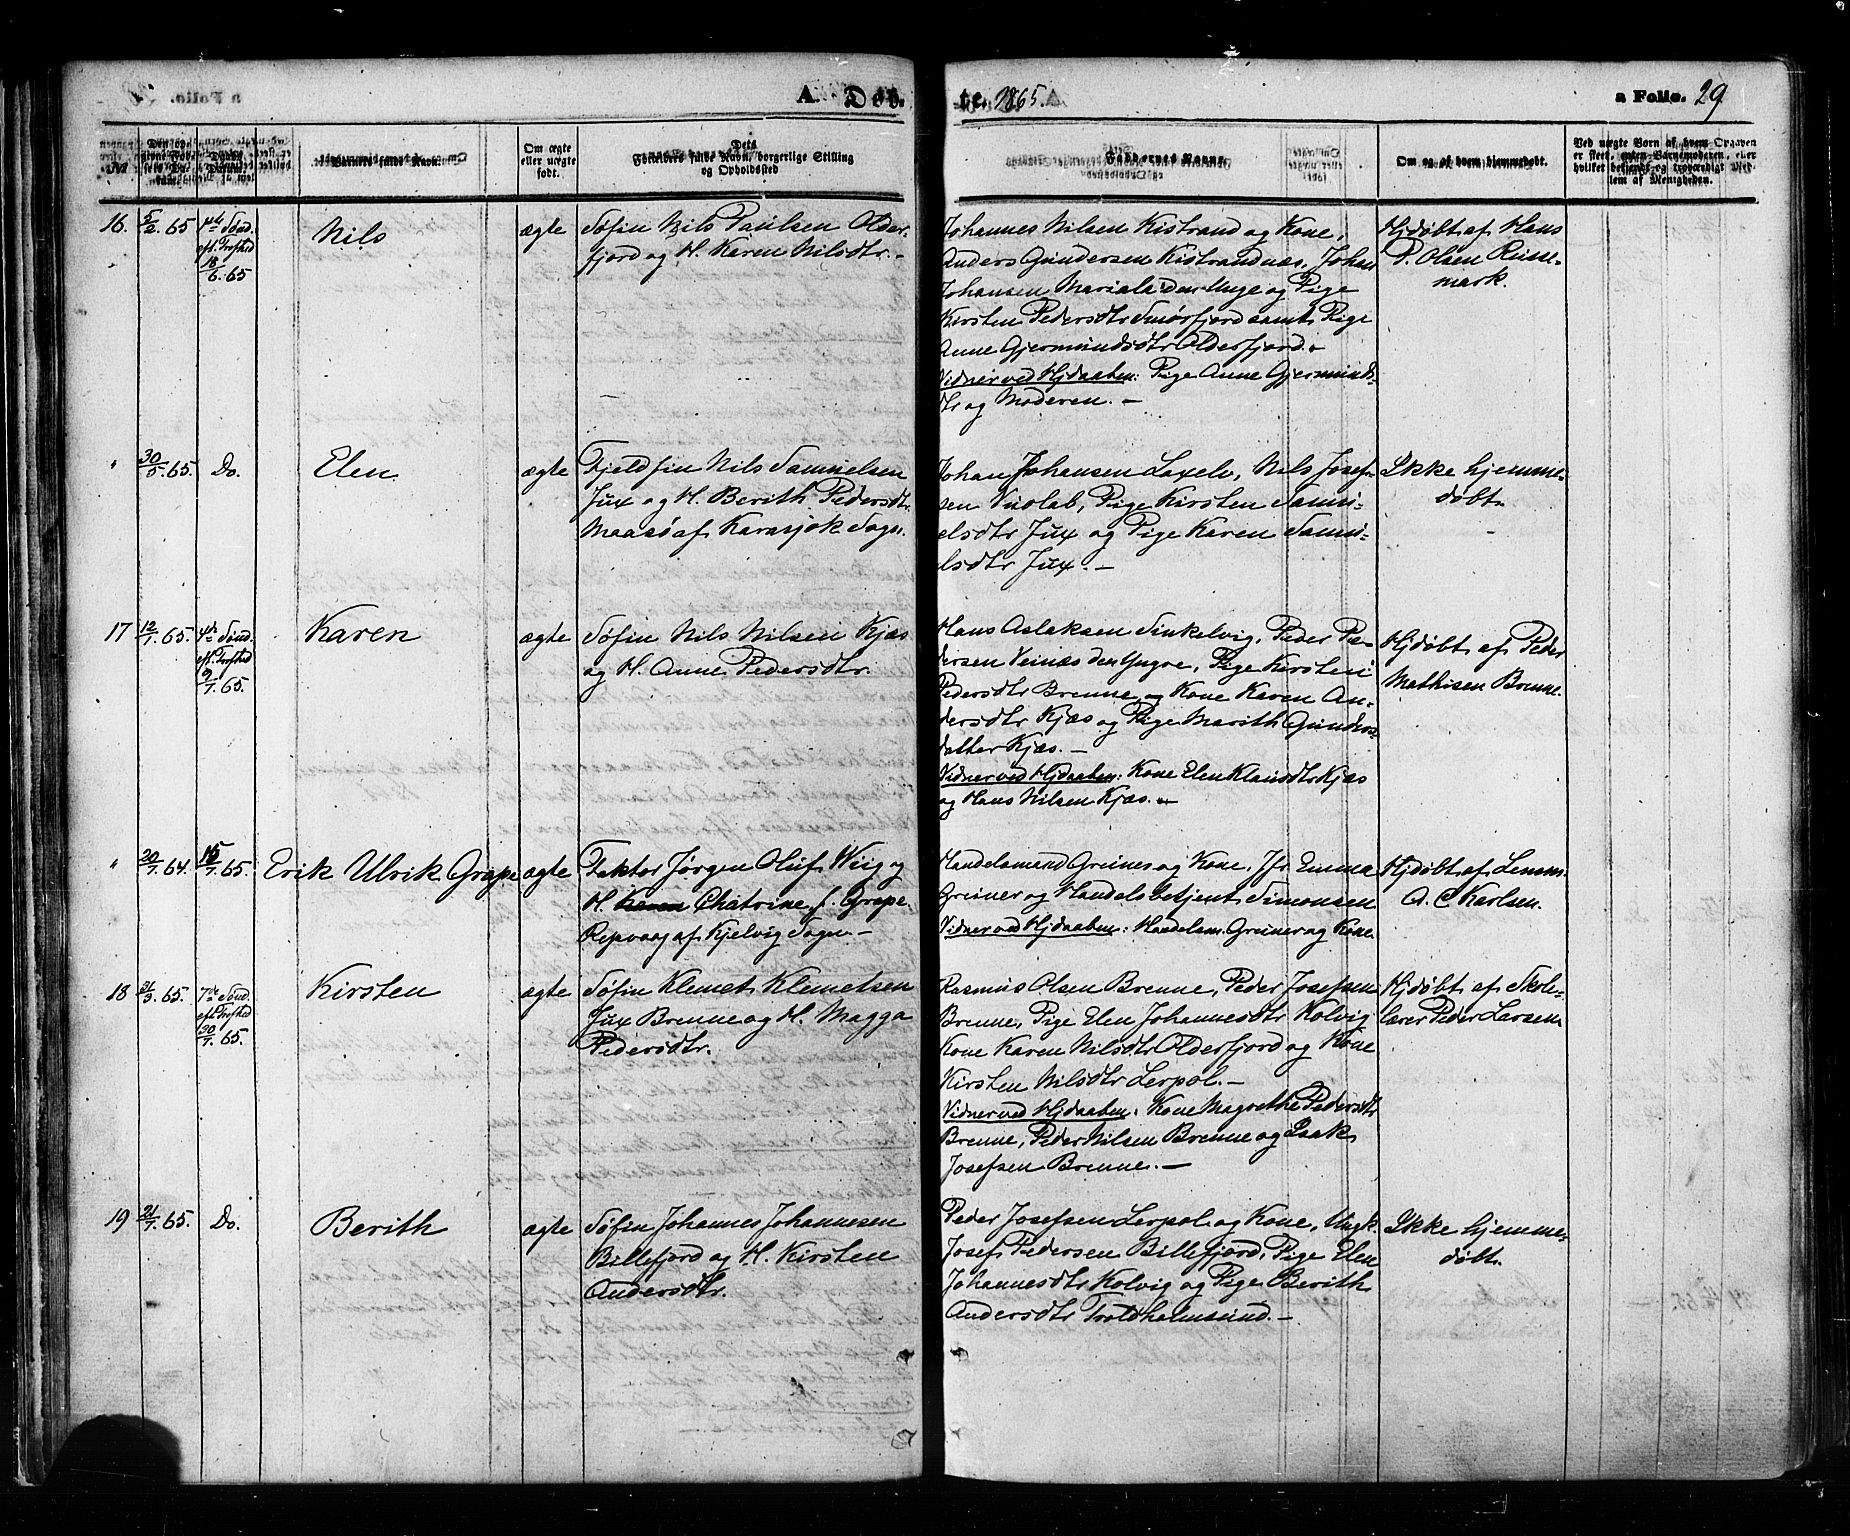 A. Døb-
te. 1865.
a Folio. 29
No
Barnets fulde Navn.
Om ægte
eller uægte
født.
Dets
Forældres fulde Navn, borgerlige Stilling
og Opholdssted
Faddernes Navne
Om og af hvem hjemmedøbt.
Ved uægte Børn af hvem Opgaven
er skeet, enten Barnemoderen, eller
hvilket bekjendt og troværdigt Med-
lem af Menigheden.
16. 5/2 65 4de Sønd. eft. Trefted 18/6. 65
Nils
ægte
Søfin Nils Paulsen Older-
fjord og H. Karen Nilsdtr. -
Johannes Nilsen Kistrand og Kone,
Anders Gundersen Kistrandnæs, Johan
Johansen Mariala den Unge og Pige
Kirsten Pedersdtr Smørfjord samt Pige
Anne Gjermundsdtr Olderfjord. -
Vidner ved Hjdaaben: Pige Anne Gjermunds-
dtr og Moderen. -
Hjdøbt af Hans
P. Olsen Russe-
mark.
" 30/5. 65. Do.
Elen
ægte
Fjeldfin Nils Samuelsen
Jux og H. Berith Pedersdtr.
Maasø af Karasjok Sogn.
Johan Johansen Laxelv, Nils Josef-
sen Vuolab, Pige Kirsten Samu-
elsdtr Jux og Pige Karen Samu-
elsdtr Jux. -
Ikke hjemme-
døbt.
17 12/1. 65. 4de Sønd. eft. Trefted 9/7. 65.
Karen
ægte
Søfin Nils Nilsen Kjæs
og H. Anne Pedersdtr.
Hans Aslaksen Sinkelvig, Peder Pe-
dersen Veinæs den Yngre, Pige Kirsten
Pedersdtr Brenne og Kone Karen An-
dersdtr Kjæs og Pige Marith Gunders-
datter Kjæs. -
Vidner ved Hjdaaben: Kone Elen Klausdtr Kjæs
og Hans Nilsen Kjæs. -
Hjdøbt af Peder
Mathisen Brenne.
" 20/7. 64. 15/7. 65.
Erik Ulrik Grape
ægte
Faktor Jørgen Oluf Wiig og
H. Karen Chatrine f. Grape.
Repvaag af Kjelvig Sogn -
Handelsmand Greiner og Kone, Jfr. Emma
Greiner og Handelsbetjent Simonsen
Vidner ved Hjdaaben: Handelsm. Greiner og Kone.
Hjdøbt af Lensm.
A. C Karlsen.
18 21/3. 65. 7de Sønd. eft. Trefted 30/7. 65.
Kirsten
ægte
Søfin Klemet Klemetsen
Jux Brenne og H. Magga
Pedersdtr.
Rasmus Olsen Brenne, Peder Josefsen
Brenne, Pige Elen Johannesdtr Kolvig
Kone Karen Nilsdtr Olderfjord og Kone
Kirsten Nilsdtr Lerpol. -
Vidner ved Hjdaaben: Kone Magrethe Pedersdtr
Brenne, Peder Nilsen Brenne og Isak
Josefsen Brenne. -
Hjdøbt af Skole-
lærer Peder Larsen.
19 21/7. 65. Do.
Berith
ægte
Søfin Johannes Johannesen
Billefjord og H. Kirsten
Andersdtr.
Peder Josefsen Lerpol og Kone, Ungk.
Josef Pedersen Billefjord, Pige Elen
Johannesdtr Kolvig og Pige Berith
Andersdtr Troldholmsund. -
Ikke hjemme-
døbt.